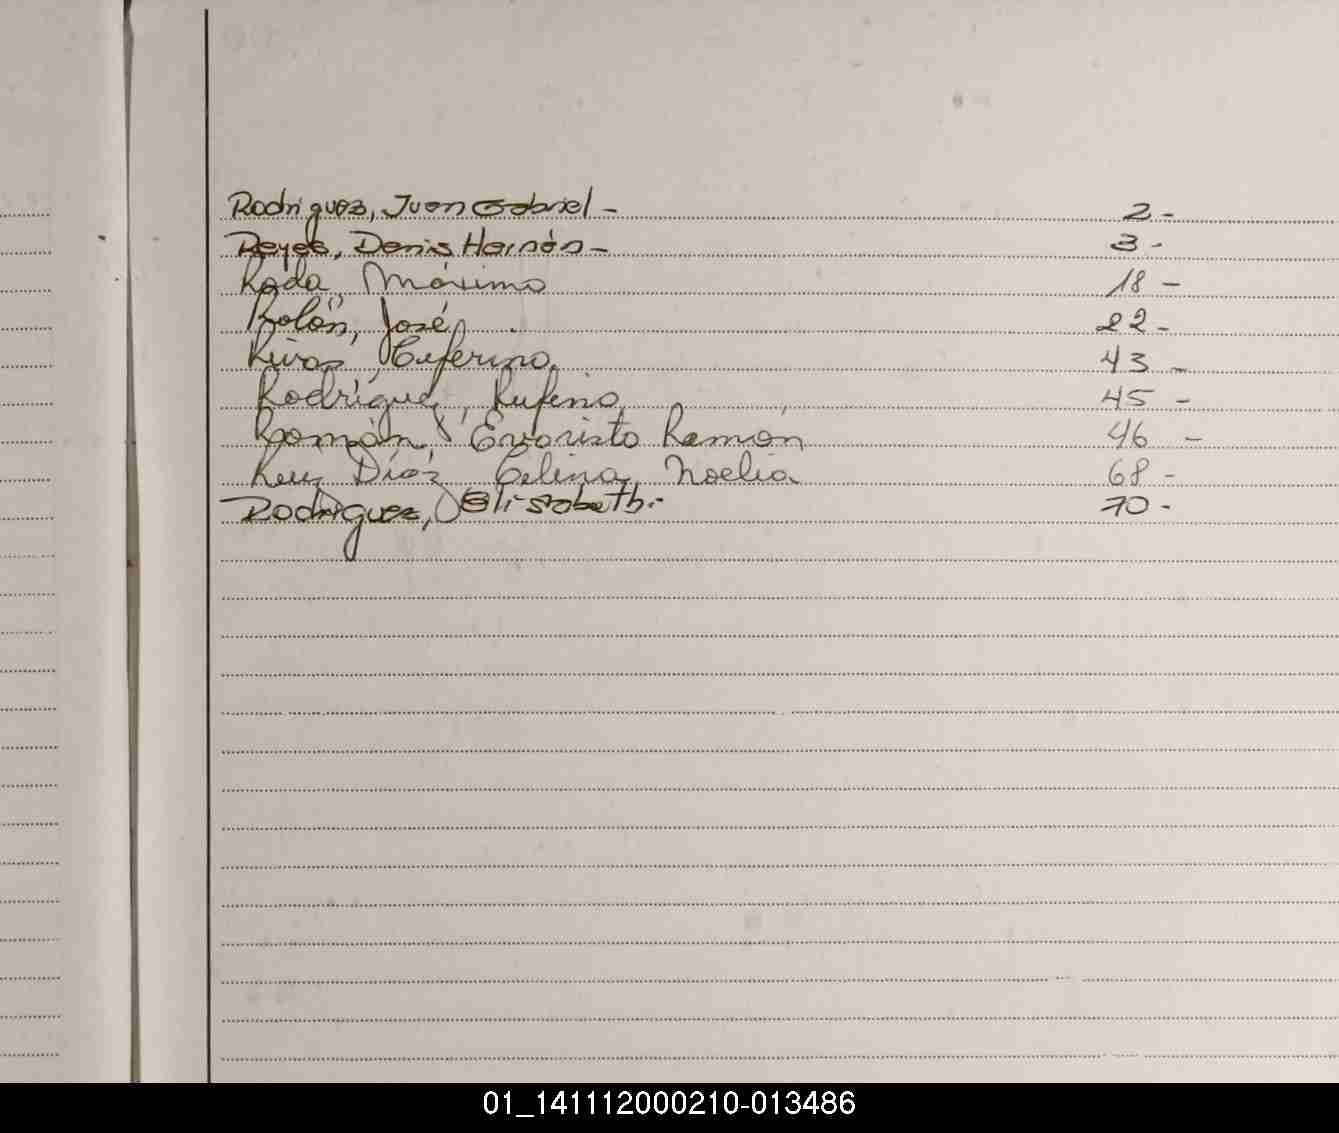 Rodriguez, Juan Gabriel - 2 -
Reyes, Denis Hernán - 3 -
Roda, Máximo 18 -
Rolón, José 22 -
Rivas, Ceferino 43 -
Rodríguez, Rufino 45 -
Román, Evaristo Ramón 46 -
Ruiz Díaz Celina Noelia 68 -
Rodriguez, Elisabeth - 70 -
01_141112000210-013486